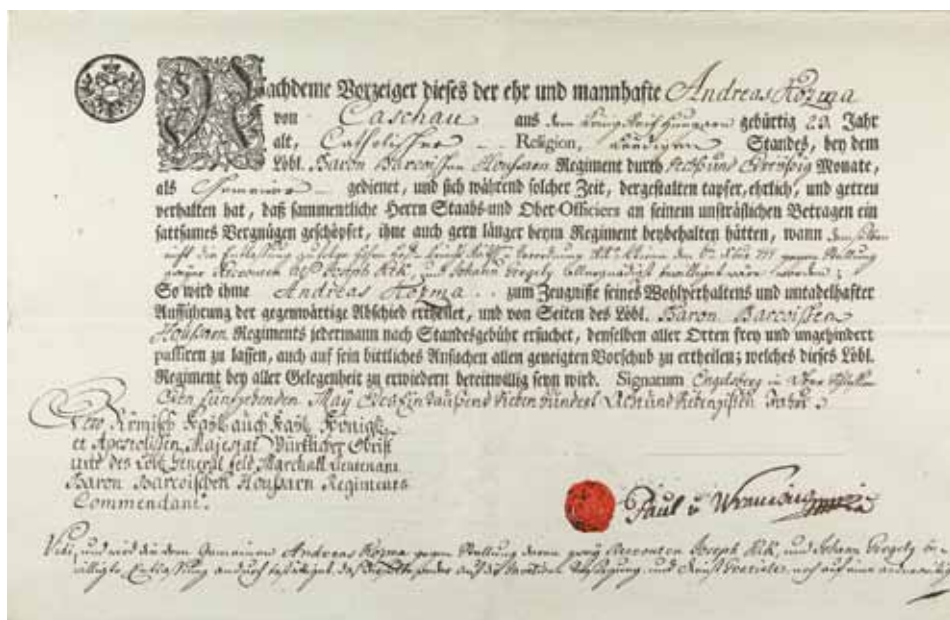 Nachdeme Vorzeiger dieses der ehr und mannhafte Andreas Kozma
von Caschau aus dem Königreich Hungarn gebürtig 29. Jahr
alt, Catholischer Religion, Standes, bey dem
Löbl. Baron Barcoischen Houßarn Regiment durch Dreyssig Monate,
als Gemeiner gedienet, und sich während solcher Zeit, dergestalten tapfer, ehrlich, und getreu
verhalten hat, daß sammentliche Herrn Staabs- und Ober-Officiers an seinem unsträflichen Betragen ein
sattsames Vergnügen geschöpfet, ihne auch gern länger beym Regiment beybehalten hätten, wann
nicht die Entlassung zufolge gegen Stellung
zweyer Recrouten Joseph Kik, und Johann Gergely allergnädigst bewilliget wäre worden;
So wird ihme Andreas Kozma zum Zeugnisse seines Wohlverhaltens und untadelhafter
Aufführung der gegenwärtige Abschied ertheilet, und von Seiten des Löbl. Baron Barcoischen
Houßarn Regiments jedermann nach Standsgebühr ersuchet, denselben aller Orten frey und ungehindert
passiren zu lassen, auch auf sein bittliches Ansuchen allen geneigten Vorschub zu ertheilen; welches dieses Löbl.
Regiment bey aller Gelegenheit zu erwiedern bereitwillig seyn wird. Signatum Engelsberg in
Den fünfzehenden May Eintausend Sieben hundert Acht und Siebenzigsten Jahrs
Römisch Kayl. auch Kayl. Königl.
et Apostolischen Majestät Würklicher Obrist
und des Löbl. General Feld Marchall Lieutenant
Baron Barcoischen Houßarn Regiments
Commendant.
Paul v
Vidi, und wird die dem Gemeinen Andreas Kozma gegen Stellung deren zwey Recrouten Joseph Kik, und Johann Gergely
Entlassung andurch bestättiget, daß auf die Invaliden Verpflegung, und noch auf eine